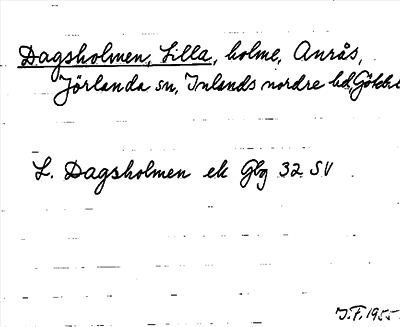 Dagsholmen, Lilla, holme, Anrås,
Jörlanda sn, Inlands nordre hd, Götebo
L. Dagsholmen ek Gbg 32 SV
J.F. 1955.